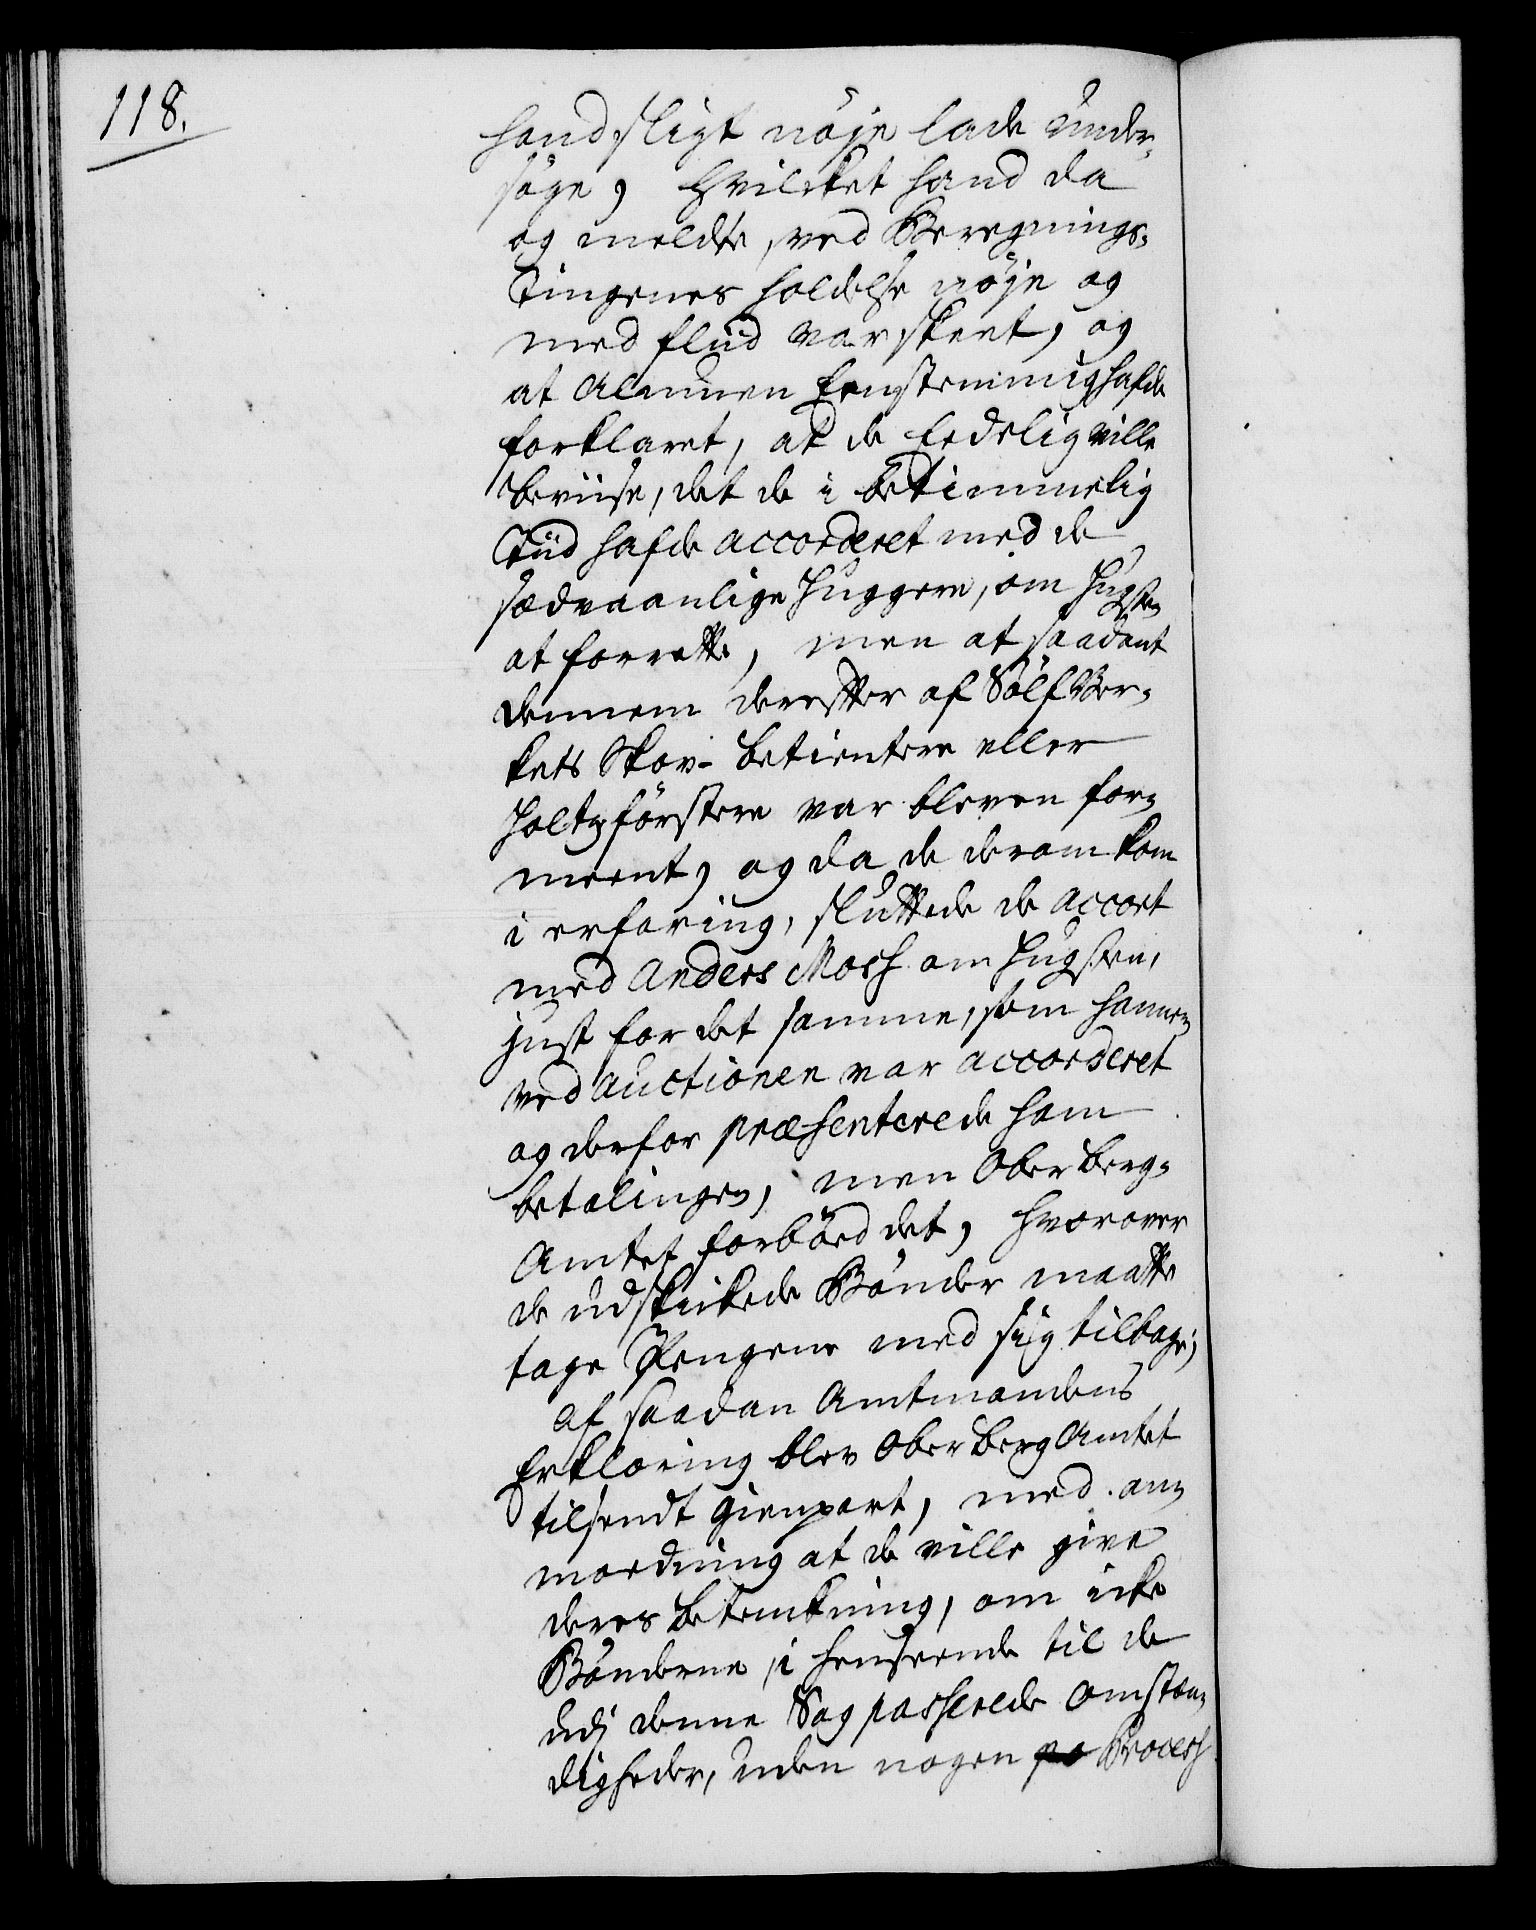 118.
hand sligt nøje lade under-
søge, hvilcket hand da
og meldte, ved Beregnings-
Tingenes holdelse nøje og
med fliid var skeet, og
at Almuen Eenstemmig hafde
forklaret, at de Eedelig ville
beviise, det de i betimmelig
Tiid hafde accorderet med de
sædvaanlige Huggere, om Hugsten
at forrette, men at saadant
dennem derefter af Sølf Ver-
kets Skov-betientere eller
Holtzførstere var bleven for-
meent, og da de derom kom
i erfaring, sluttede de accort
med Anders Moss om Hugsten,
just for det samme, som hannem
ved Auctionen var accorderet
og derfor præsenterede ham
betalingen, men Ober Berg-
Amtet forbøed det, hvorover
de udskikede Bønder maatte
tage Pengene med sig tilbage;
Af saadan Amtmandens
Erklæring blev Ober Berg Amtet
tilsendt Gienpart, med an-
moedning at de ville give
deres betenkning, om icke
Bønderne, i henseende til de
udj denne Sag passerede omstæn-
digheder, uden nogen Process